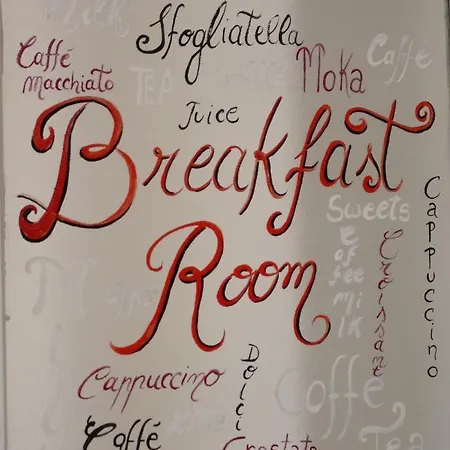 MILK
Sfogliatella
Caffé
macchiato
TEA
Moka
Caffé
Juice
Breakfast
Room
Sweets
Coffee
milk
Croissant
Cappuccino
Cappuccino
Dolci
Coffee
Caffé
Crostata
Tea